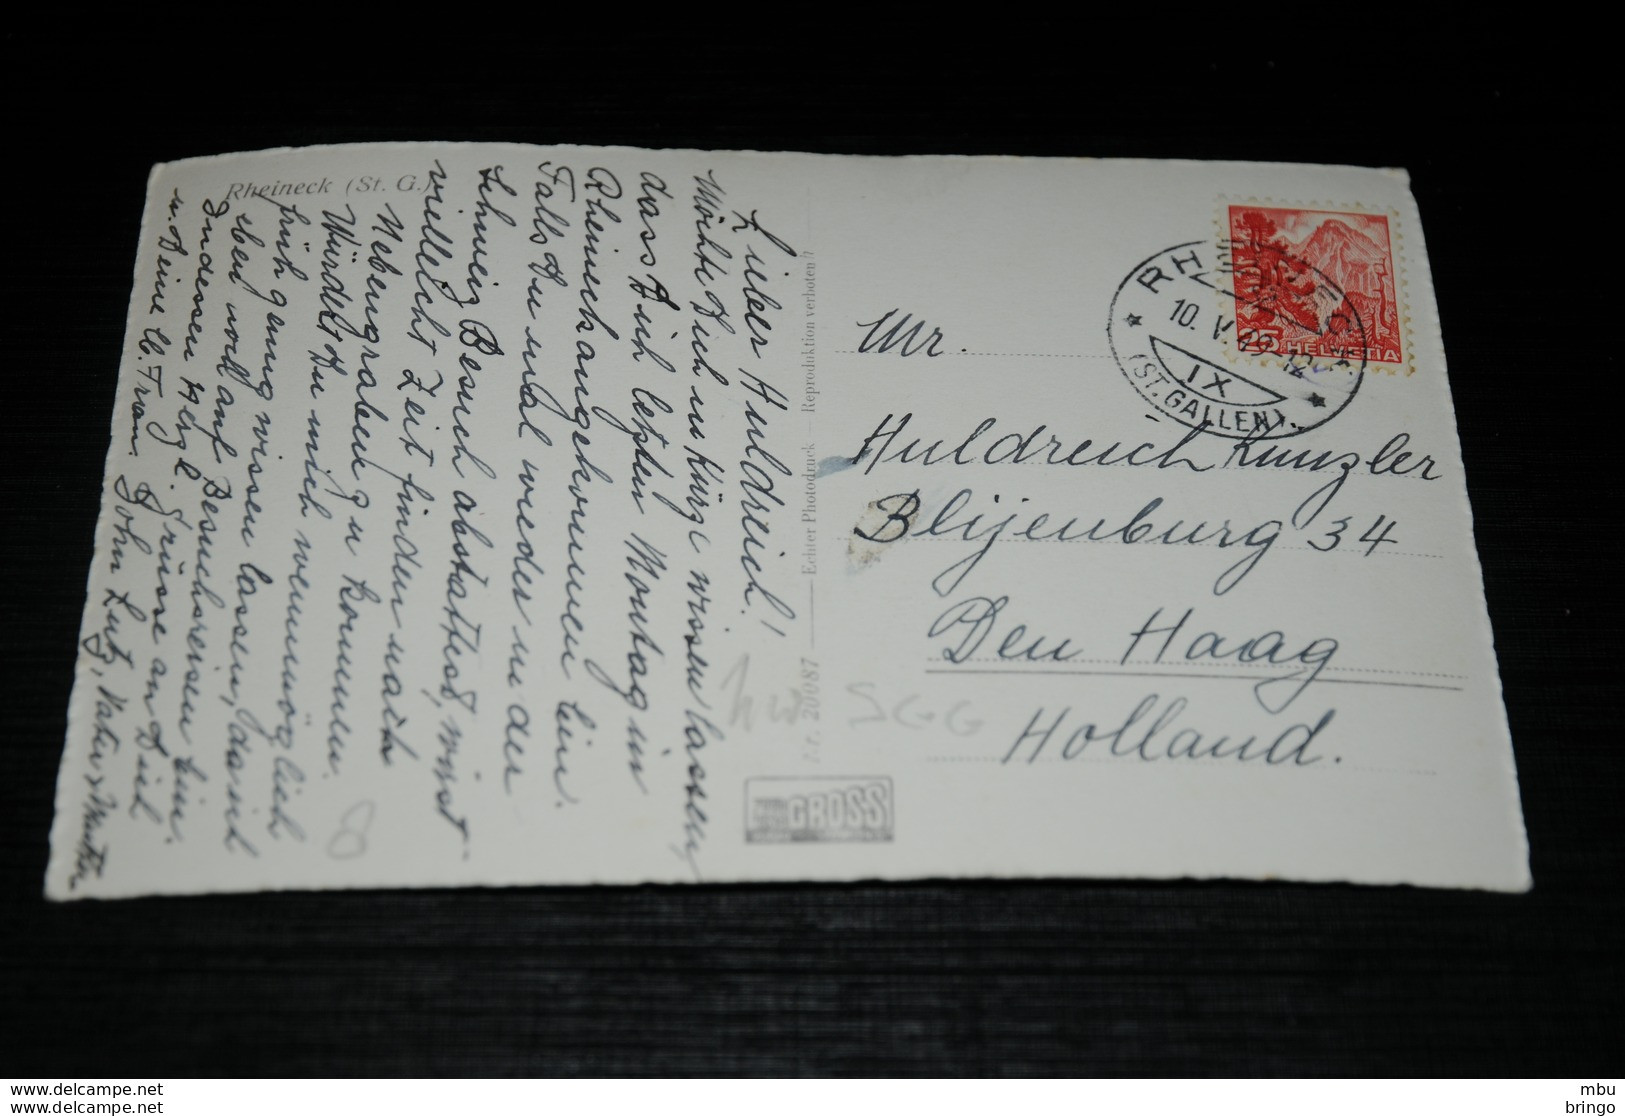 Rheineck (St. G.)
Lieber Huldreich!
Möchte Dich in Kürze wissen lassen,
dass Dich letzten Montag in
Rheineck angekommen bin.
Falls Du mal wieder in der
Schweiz Besuch abstattest, wirst
vielleicht Zeit finden nach
Nebengraben zu kommen.
Würdest Du mich wenn möglich
früh genug wissen lassen, damit
eben nicht auf Besuchsreisen bin.
Indessen herzl. Grüsse an Dich
u. Deine lb. Frau. John Lutz, Vater & Mutter
Nr. 20087 — Echter Photodruck — Reproduktion verboten!
GROSS
Mr.
Huldreich Kunzler
Blijenburg 34
Den Haag
Holland.
RHEINECK
10. V.
IX
(ST. GALLEN)
25 HELVETIA
SGG
8
mbu
bringo
www.delcampe.net
www.delcampe.net